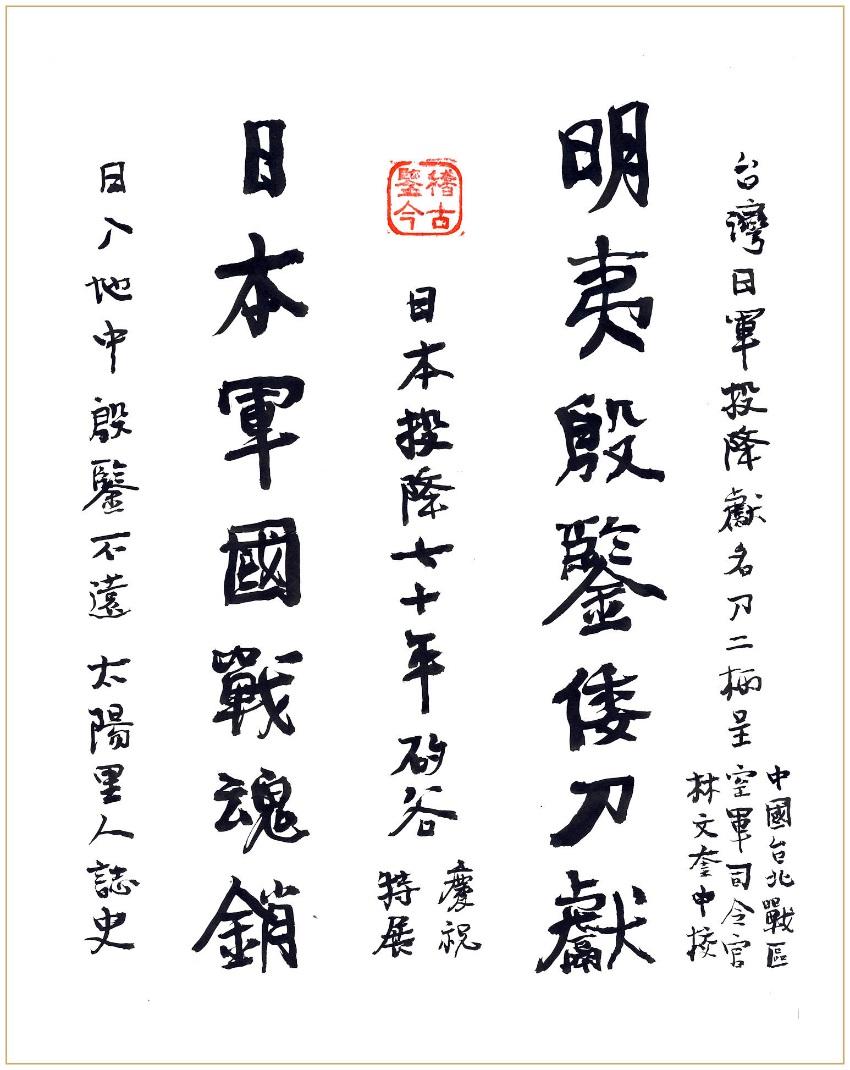 台灣日軍投降獻名刀二柄呈
中國台北戰區
空軍司令官
林文奎中校
明夷殷鑒倭刀獻
稽古
鑒今
日本投降七十年矽谷
慶祝
特展
日本軍國戰魂銷
日入地中殷鑒不遠太陽里人誌史